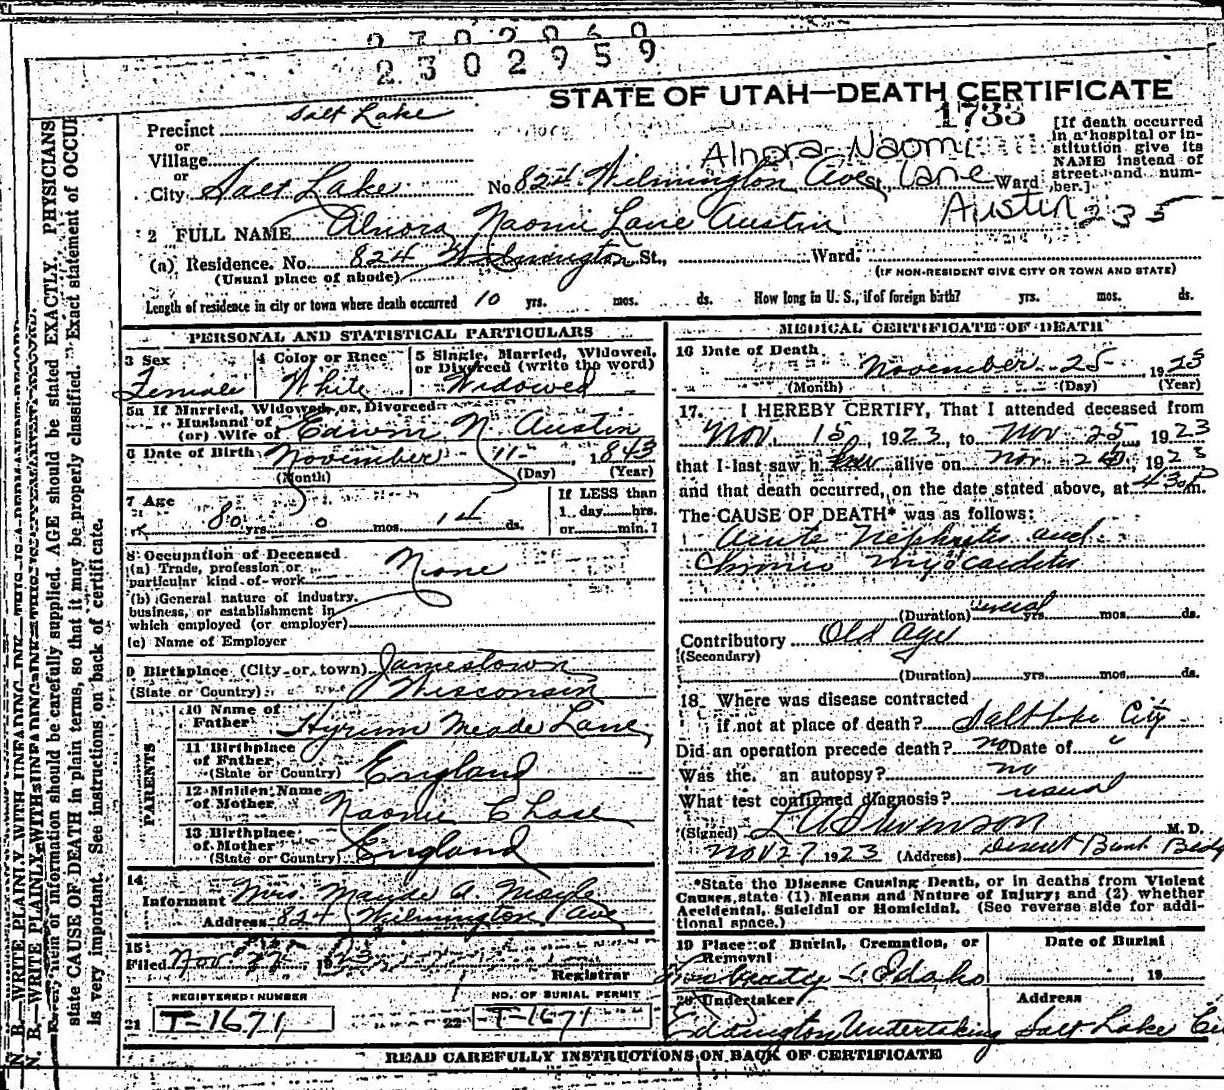 2302959
STATE OF UTAH—DEATH CERTIFICATE
1733
Precinct Salt Lake
or
Village
or
City Salt Lake No. 824 Wilmington Ave St., Ward
[If death occurred in a hospital or institution give its NAME instead of street and number.]
Alnora Naomi Lane Austin 235
2 FULL NAME Alnora Naomi Lane Austin
(a) Residence. No. 824 Wilmington St., Ward.
(Usual place of abode) (IF NON-RESIDENT GIVE CITY OR TOWN AND STATE)
Length of residence in city or town where death occurred 10 yrs. mos. ds. How long in U. S., if of foreign birth? yrs. mos. ds.
PERSONAL AND STATISTICAL PARTICULARS
3 Sex Female
4 Color or Race White
5 Single, Married, Widowed, or Divorced (write the word) Widowed
5a If Married, Widowed or Divorced
Husband of
(or) Wife of Edwin N. Austin
6 Date of Birth November 11 1843
(Month) (Day) (Year)
7 Age 80 yrs. 0 mos. 14 ds.
If LESS than
1 day hrs.
or min.?
8 Occupation of Deceased
(a) Trade, profession or particular kind of work None
(b) General nature of industry, business, or establishment in which employed (or employer)
(c) Name of Employer
9 Birthplace (City or town) Jamestown
(State or Country) Wisconsin
PARENTS
10 Name of Father Hyrum Meade Lane
11 Birthplace of Father (State or Country) England
12 Maiden Name of Mother Naomi Chase
13 Birthplace of Mother (State or Country) England
14
Informant Mrs. Maude A.
Address 824 Wilmington Ave
15
Filed Nov 27 1923
Registrar
REGISTERED NUMBER
21 T-1671
NO. OF BURIAL PERMIT
22 T-1671
MEDICAL CERTIFICATE OF DEATH
16 Date of Death November 25 1923
(Month) (Day) (Year)
17. I HEREBY CERTIFY, That I attended deceased from
Nov. 15, 1923, to Nov 25, 1923
that I last saw her alive on Nov. 1923
and that death occurred, on the date stated above, at 430 P m.
The CAUSE OF DEATH* was as follows:
Acute Nephritis and
Chronic myocarditis
(Duration) several yrs. mos. ds.
Contributory Old Age
(Secondary)
(Duration) yrs. mos. ds.
18 Where was disease contracted
if not at place of death? Salt Lake City
Did an operation precede death? no Date of
Was the. an autopsy? no
What test confirmed diagnosis? usual
(Signed) L A Stevenson M. D.
Nov 27 1923 (Address) Deseret Bank Bldg
*State the Disease Causing Death, or in deaths from Violent
Causes, state (1) Means and Nature of Injury; and (2) whether
Accidental, Suicidal or Homicidal. (See reverse side for additional space.)
19 Place of Burial, Cremation, or Removal Idaho
Date of Burial
19
20 Undertaker Eddington Undertaking
Address Salt Lake Ci
READ CAREFULLY INSTRUCTIONS ON BACK OF CERTIFICATE
N. B.—WRITE PLAINLY WITH UNFADING INK—THIS IS A PERMANENT RECORD.
N. B.—WRITE PLAINLY WITH UNFADING INK
Every item of information should be carefully supplied. AGE should be stated EXACTLY. PHYSICIANS
state CAUSE OF DEATH in plain terms, so that it may be properly classified. Exact statement of OCCU
is very important. See instructions on back of certificate.